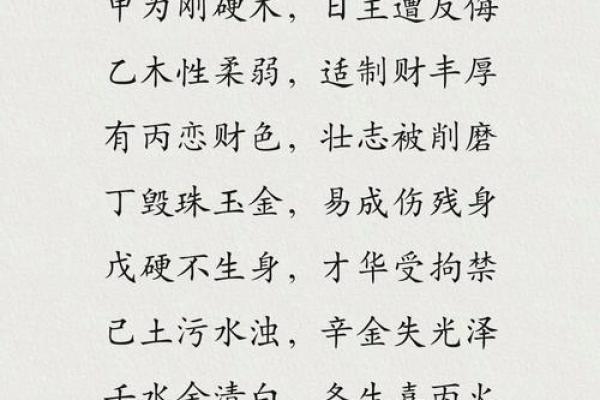 甲为刚硬木，日主遭反侮
乙木性柔弱，适制财丰厚
有丙恋财色，壮志被削磨
丁毁珠玉金，易成伤残身
戊硬不生身，才华受拘禁
己土污水浊，辛金失光泽
壬水金清白，冬生喜丙火